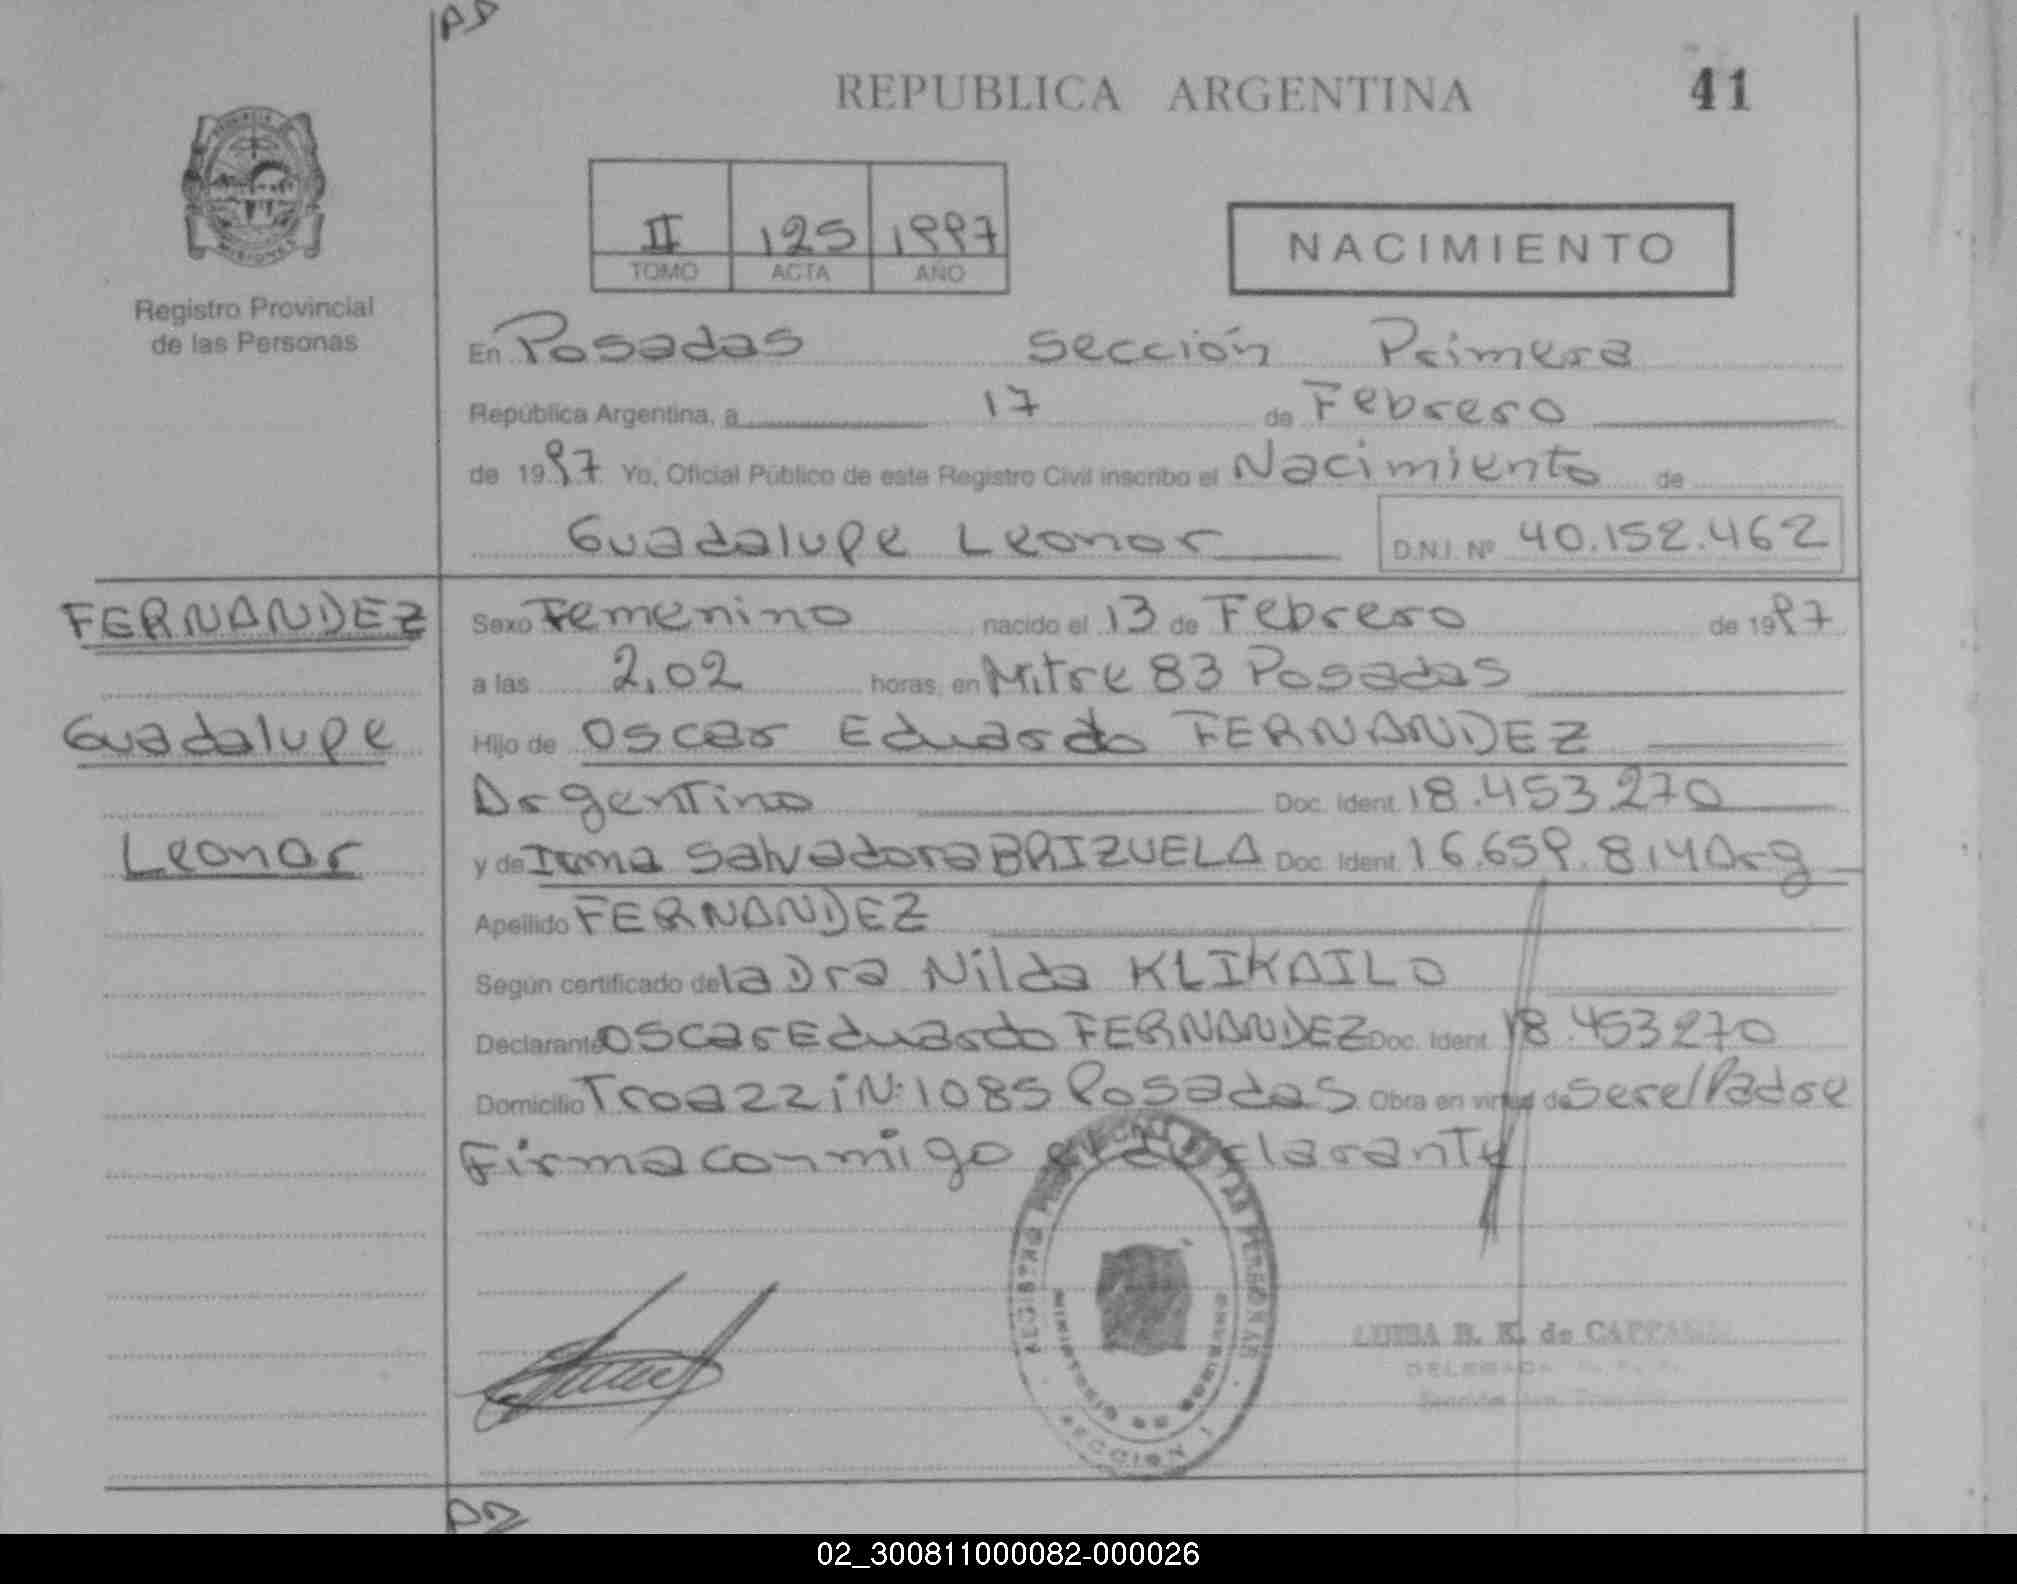 REPUBLICA ARGENTINA 41
II 125 1997
TOMO ACTA AÑO
NACIMIENTO
Registro Provincial
de las Personas
En Posadas Sección Primera
República Argentina, a 17 de Febrero
de 1997 Yo, Oficial Público de este Registro Civil inscribo el Nacimiento de
Guadalupe Leonor D.N.I. Nº 40.152.462
FERNANDEZ
Guadalupe
Leonor
Sexo Femenino nacido el 13 de Febrero de 1997
a las 2,02 horas, en Mitre 83 Posadas
Hijo de Oscar Eduardo FERNANDEZ
Argentino Doc. Ident. 18.453.270
y de Irma Salvadora BRIZUELA Doc. Ident. 16.659.814 Arg
Apellido FERNANDEZ
Según certificado de la Dra Nilda KLIKAILO
Declarante Oscar Eduardo FERNANDEZ Doc. Ident. 18.453270
Domicilio Troazzi N: 1085 Posadas Obra en virtud de ser el Padre
Firma conmigo el declarante
REGISTRO DE LAS PERSONAS
MINISTERIO DE GOBIERNO
SECCION 1
LUISA B. K. de
DELEGADA
02_300811000082-000026